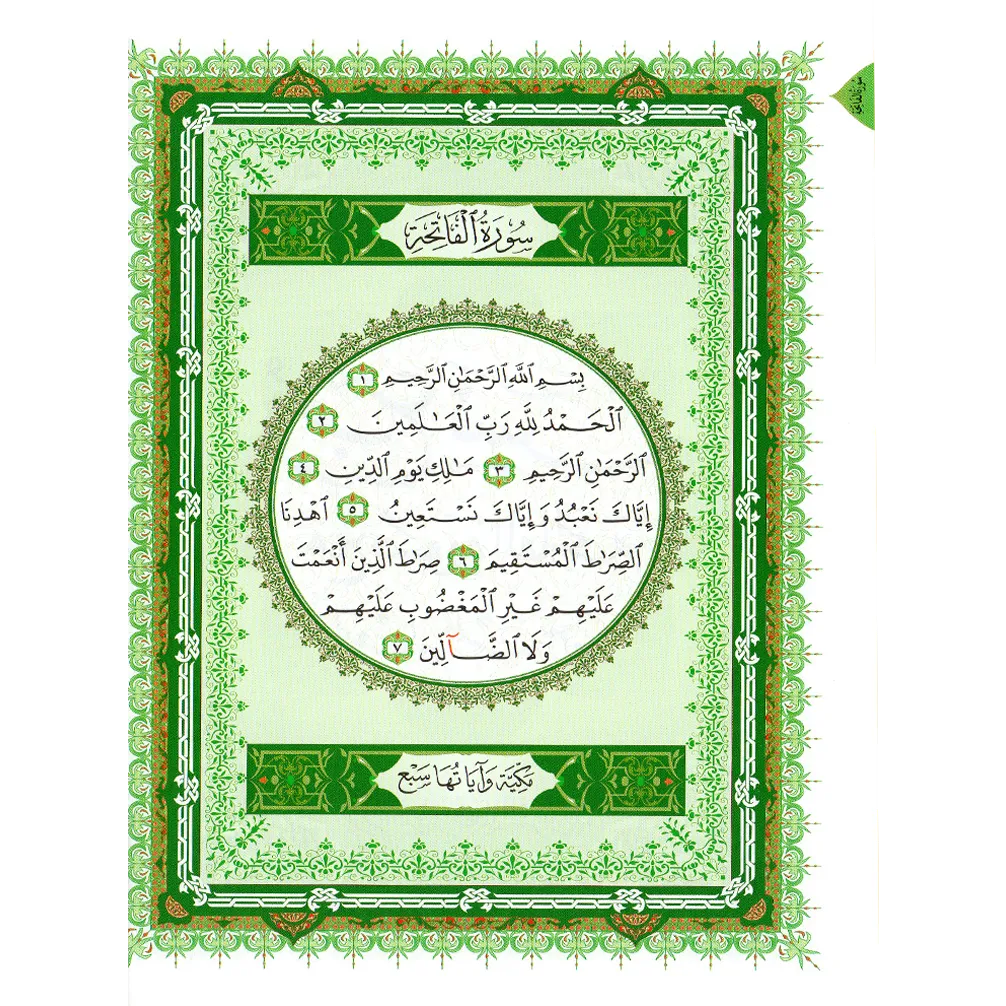 سورة الفاتحة
سُورَةُ ٱلْفَاتِحَةِ
بِسْمِ ٱللَّهِ ٱلرَّحْمَٰنِ ٱلرَّحِيمِ ١
ٱلْحَمْدُ لِلَّهِ رَبِّ ٱلْعَٰلَمِينَ ٢
ٱلرَّحْمَٰنِ ٱلرَّحِيمِ ٣ مَٰلِكِ يَوْمِ ٱلدِّينِ ٤
إِيَّاكَ نَعْبُدُ وَإِيَّاكَ نَسْتَعِينُ ٥ ٱهْدِنَا
ٱلصِّرَٰطَ ٱلْمُسْتَقِيمَ ٦ صِرَٰطَ ٱلَّذِينَ أَنْعَمْتَ
عَلَيْهِمْ غَيْرِ ٱلْمَغْضُوبِ عَلَيْهِمْ
وَلَا ٱلضَّآلِّينَ ٧
مَكِّيَّة وَآيَاتُهَا سَبْع